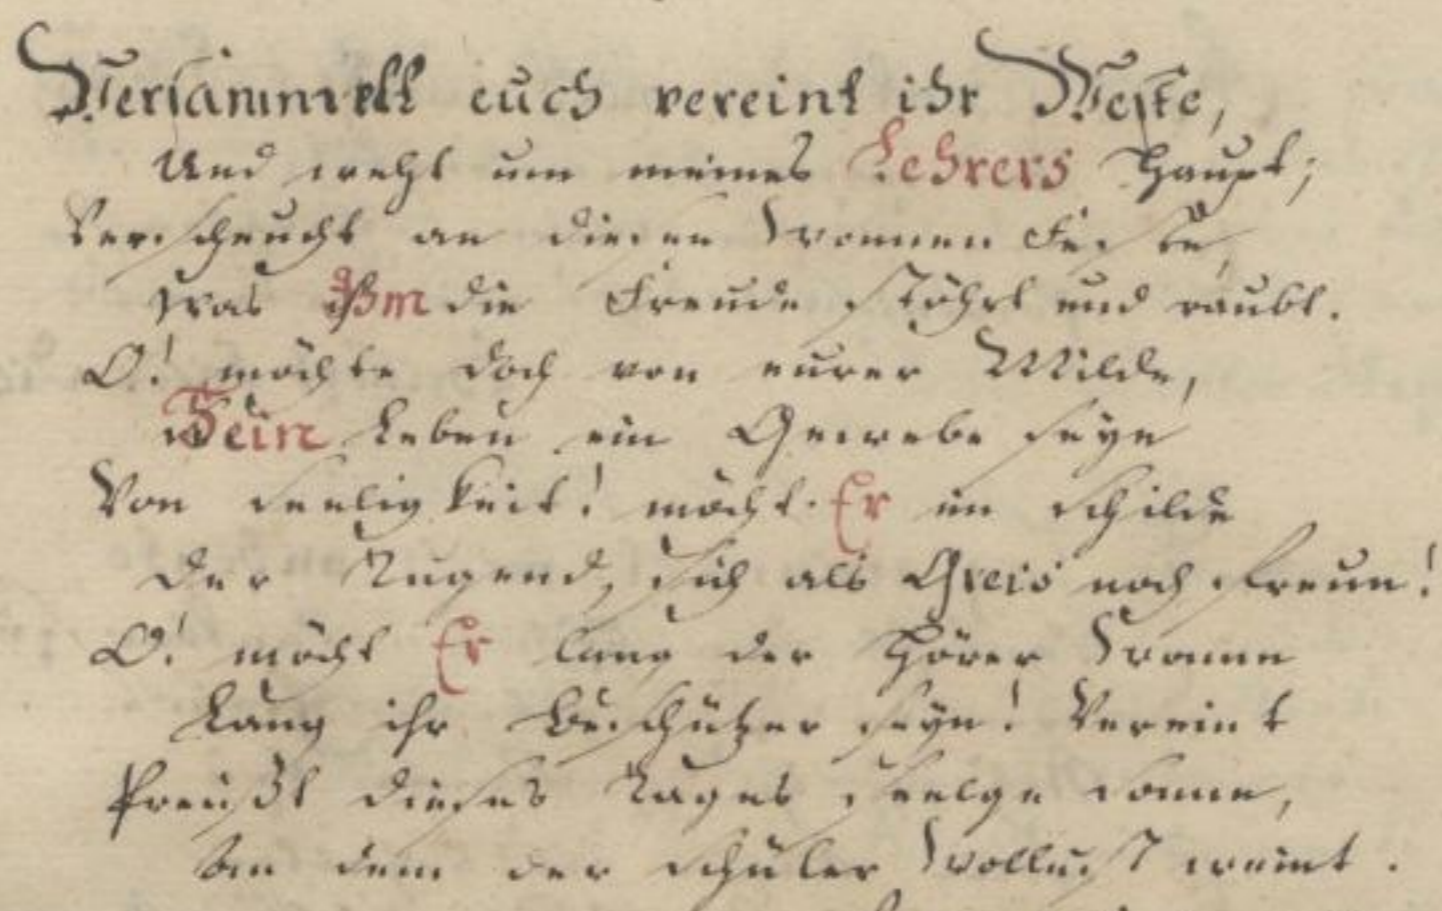 Versammelt euch vereint ihr Weste,
Und weht um meines Lehrers Haupt;
Verscheucht an diesen Wonnen Feste,
Was Ihm die Freude stöhrt und raubt.
O! möchte doch von eurer Milde,
Sein Leben ein Gewebe seyn
Von seeligkeit! möcht Er im schilde
Der Tugend, sich als Greis noch freun!
O! möcht Er lang der Hörer Wonne
Lang ihr Beschützer seyn! Vereint
Preißt dieses Tages seelge sonne,
An dem der schüler Wollust weint.